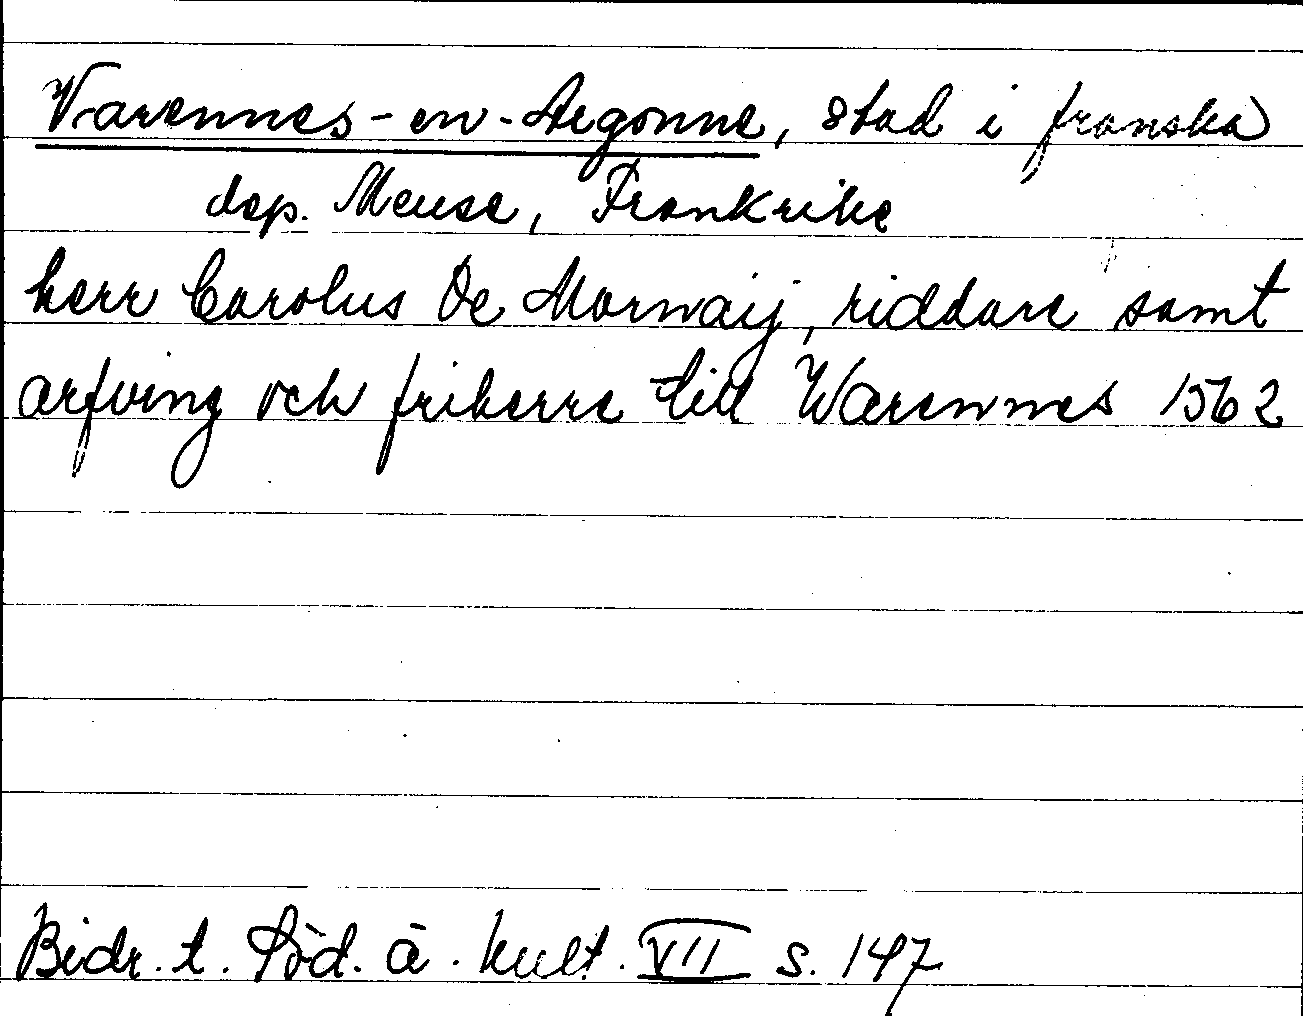 Varennes-en-Argonne, stad i franska
dep. Meuse, Frankrike
herr Carolus De Mornaij, riddare samt
arfving och friherre till Warennes 1562
Bidr. t. Söd. ä. kult. VII s. 147